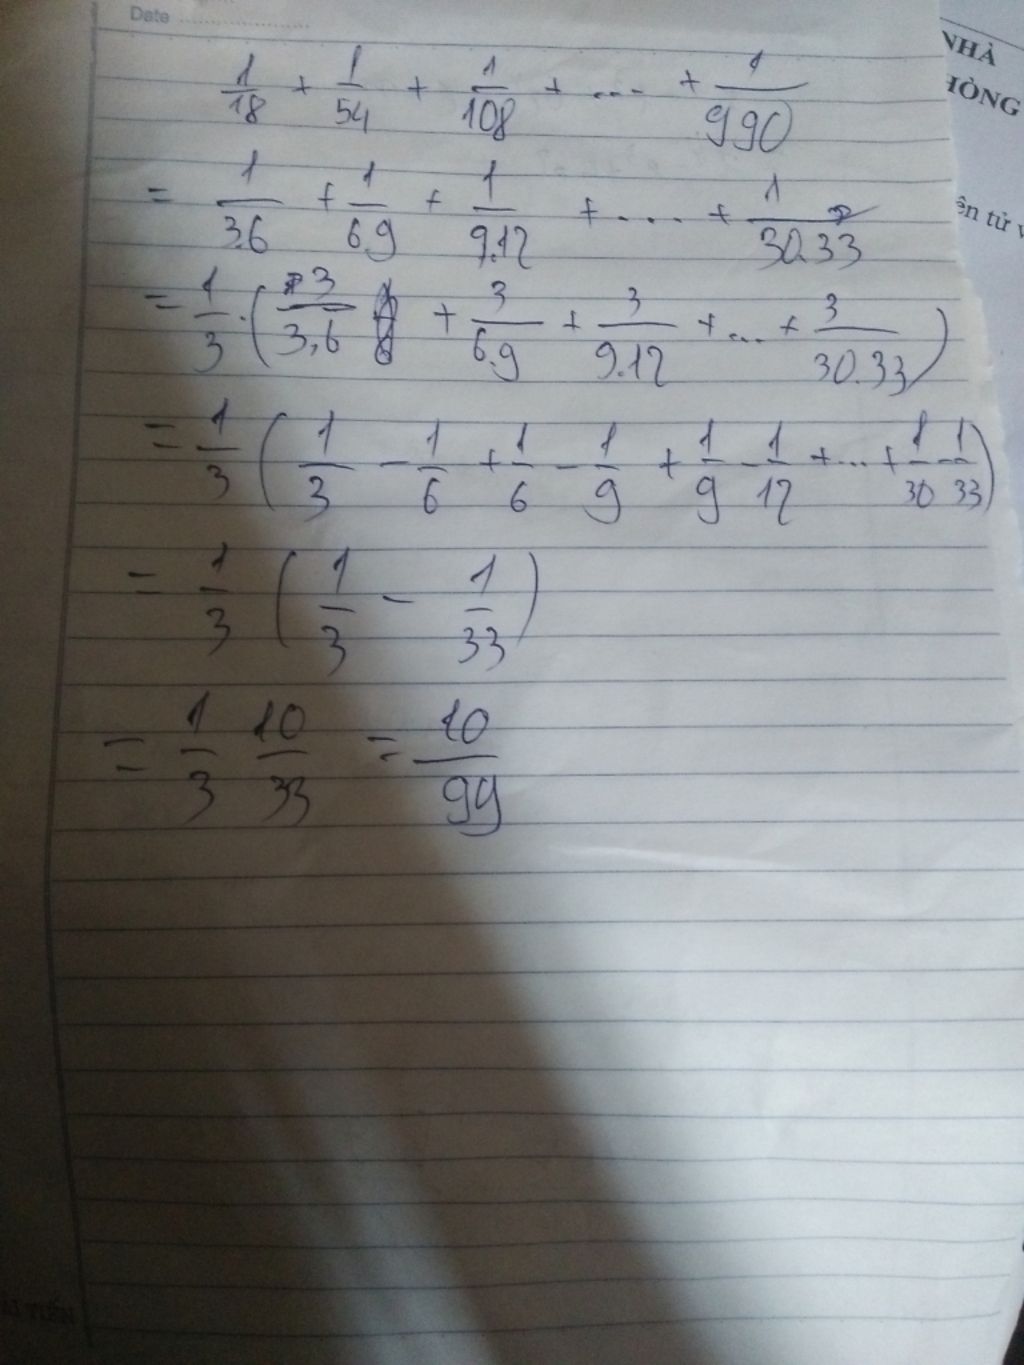 Date ....................
1/18 + 1/54 + 1/108 + .... + 1/990
= 1/3.6 + 1/6.9 + 1/9.12 + .... + 1/30.33
= 1/3 . (3/3.6 + 3/6.9 + 3/9.12 + ... + 3/30.33)
= 1/3 (1/3 - 1/6 + 1/6 - 1/9 + 1/9 - 1/12 + ... + 1/30 - 1/33)
= 1/3 (1/3 - 1/33)
= 1/3 10/33 = 10/99
NHÀ